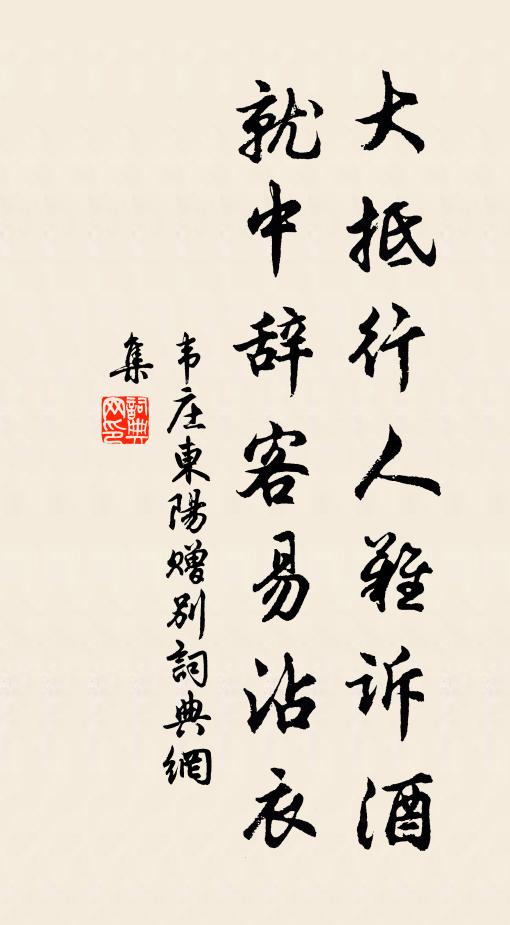 大抵行人難诉酒
就中辞客易沾衣
韦庄東陽赠别詞典網
集
詞典网印